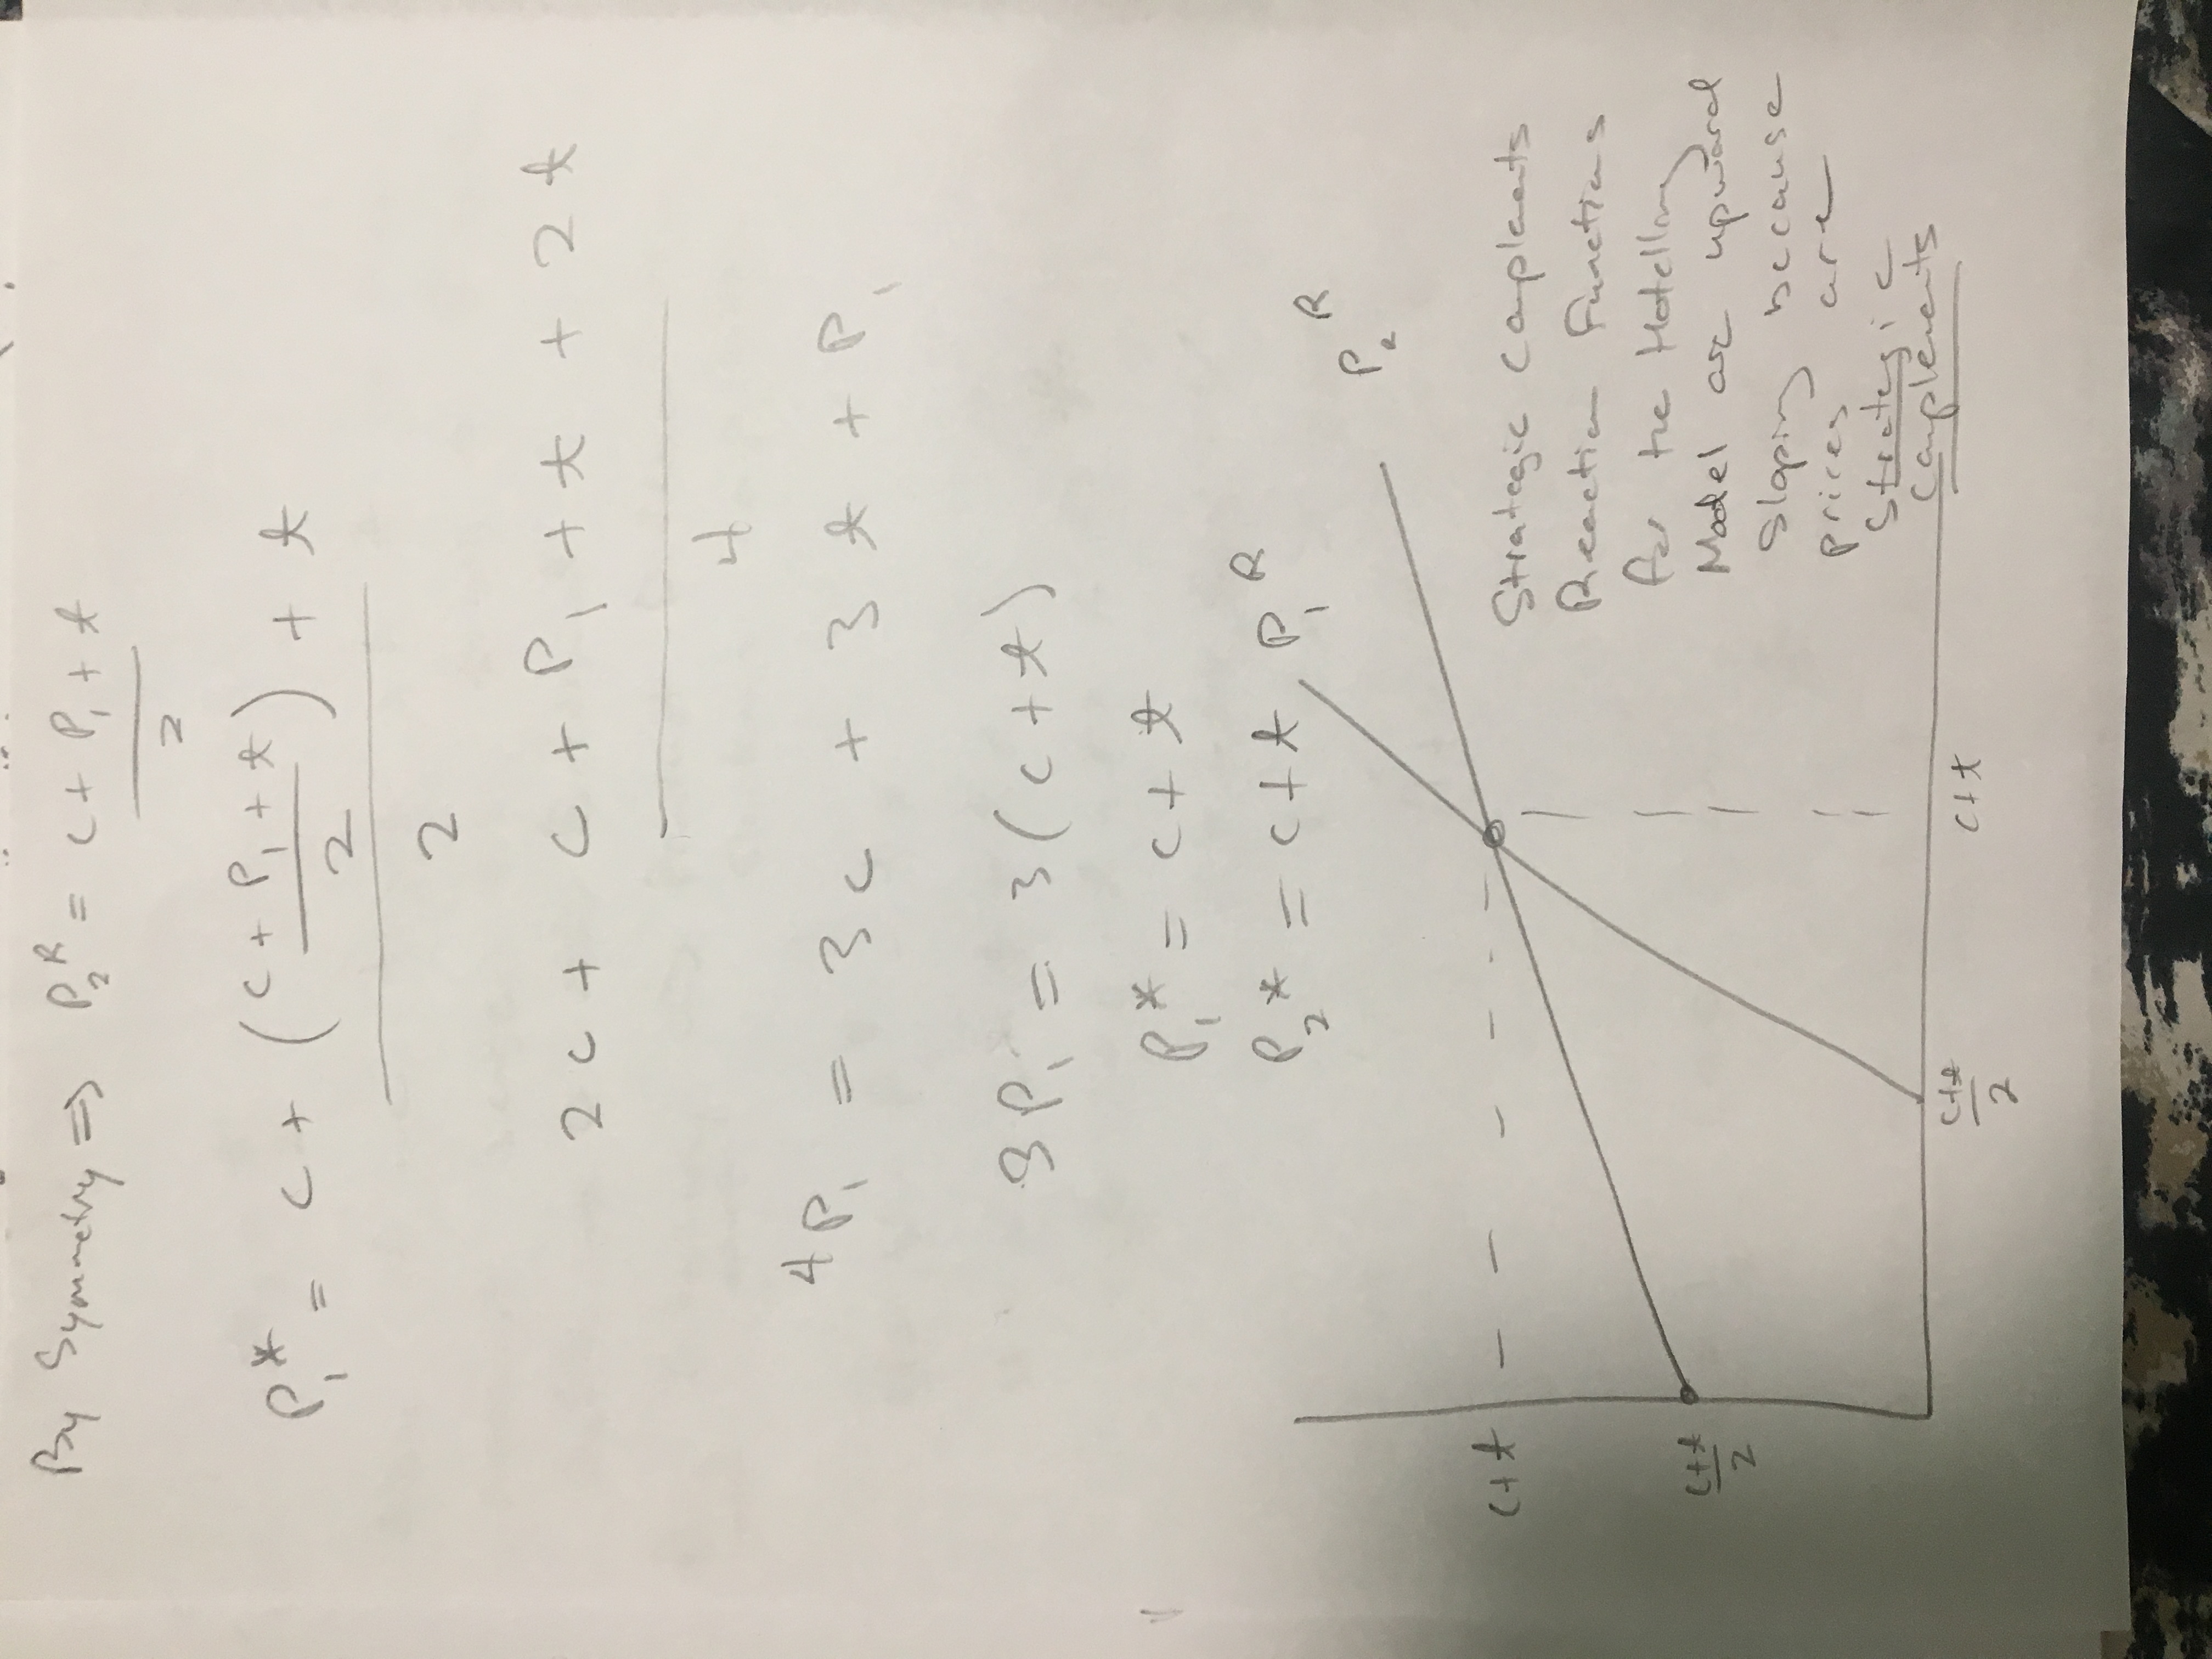 By Symmetry => P₂ᴿ = c + P₁ + t
2
P₁* = c + (c + P₁ + t / 2) + t
2
2c + c + P₁ + t + 2t
4
4P₁ = 3c + 3t + P₁
3P₁ = 3(c+t)
P₁* = c+t
P₂* = c+t
P₁ᴿ
P₂ᴿ
c+t
c+t
2
c+t
2
c+t
Strategic Complements
Reaction Functions
for the Hotelling
Model are upward
Sloping because
prices are
Strategic
Complements